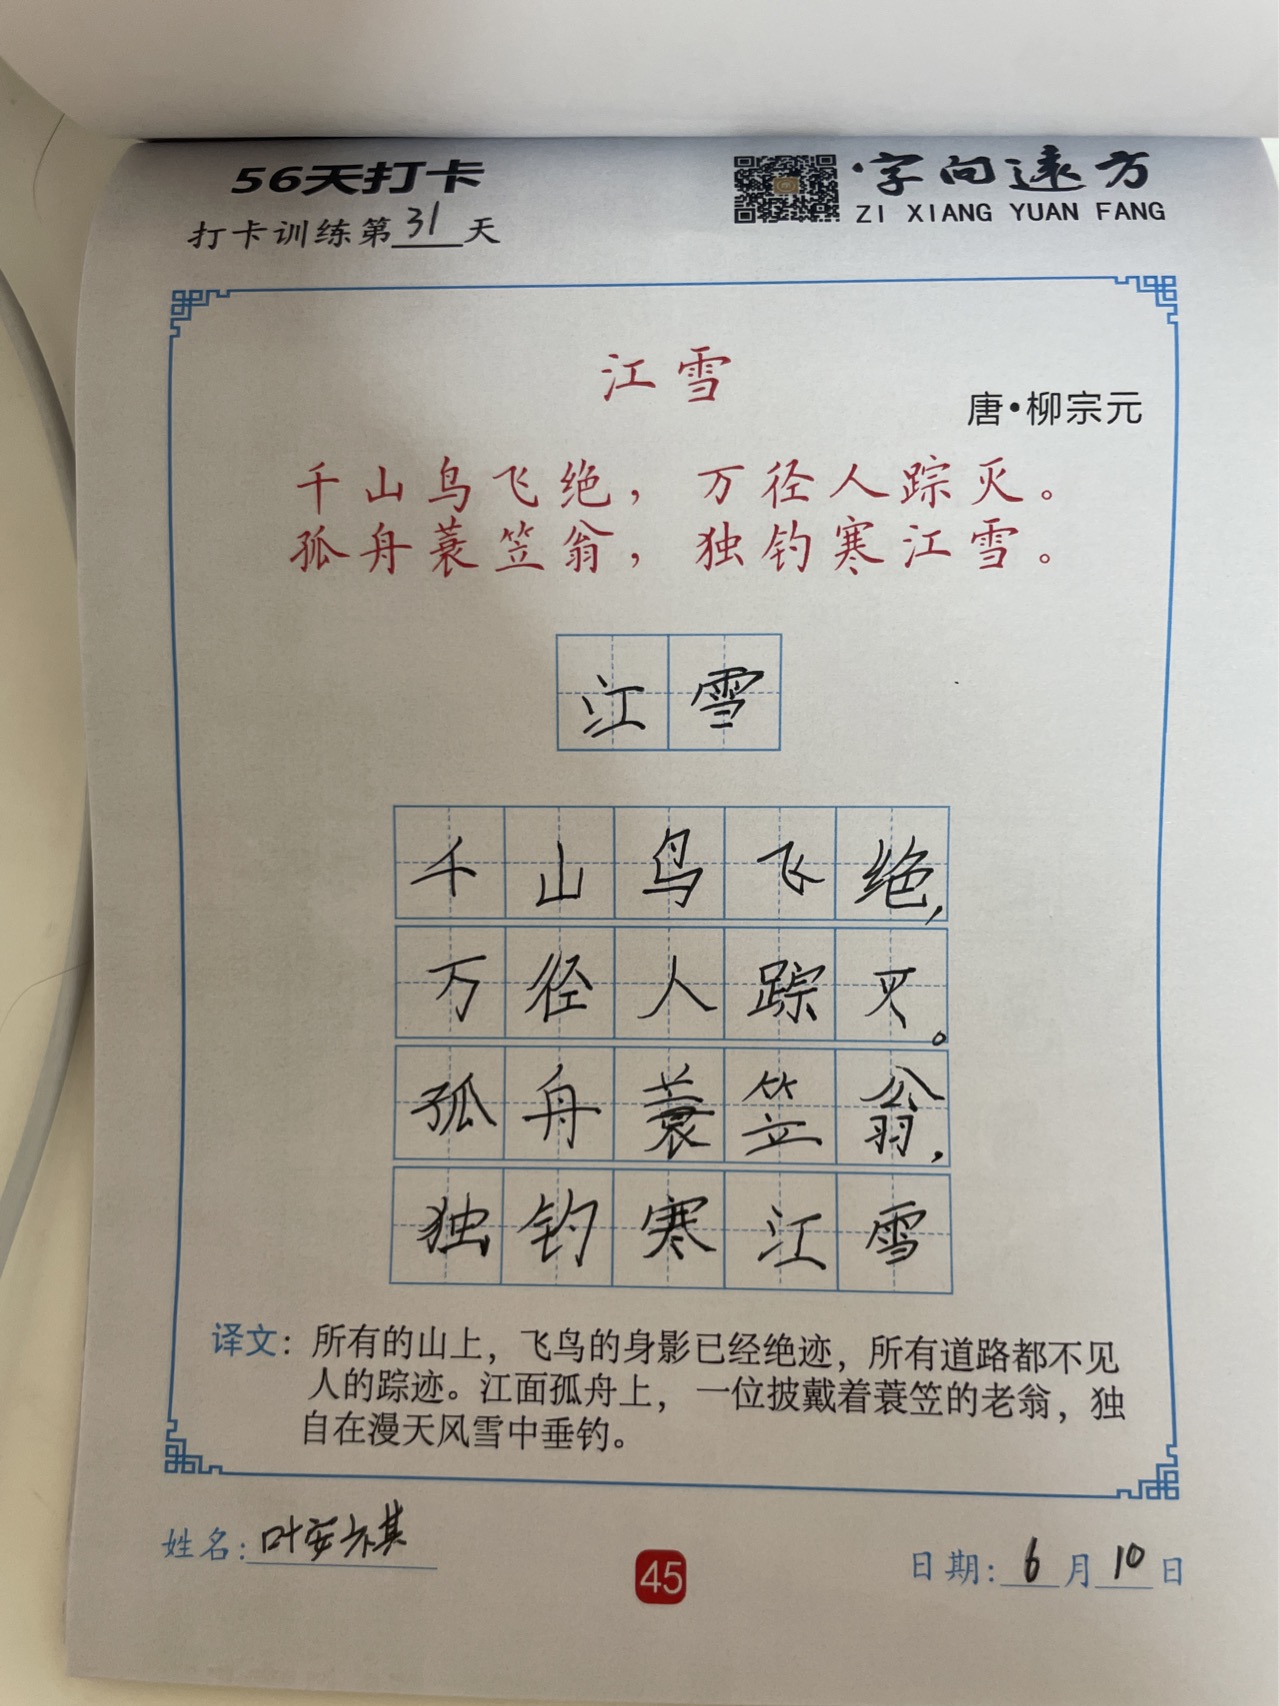 56天打卡
打卡训练第31天
字向远方
ZI XIANG YUAN FANG
江雪
唐·柳宗元
千山鸟飞绝，万径人踪灭。
孤舟蓑笠翁，独钓寒江雪。
江雪
千山鸟飞绝，
万径人踪灭。
孤舟蓑笠翁，
独钓寒江雪
译文：所有的山上，飞鸟的身影已经绝迹，所有道路都不见
人的踪迹。江面孤舟上，一位披戴着蓑笠的老翁，独
自在漫天风雪中垂钓。
姓名：叶安祺
45
日期：6月10日